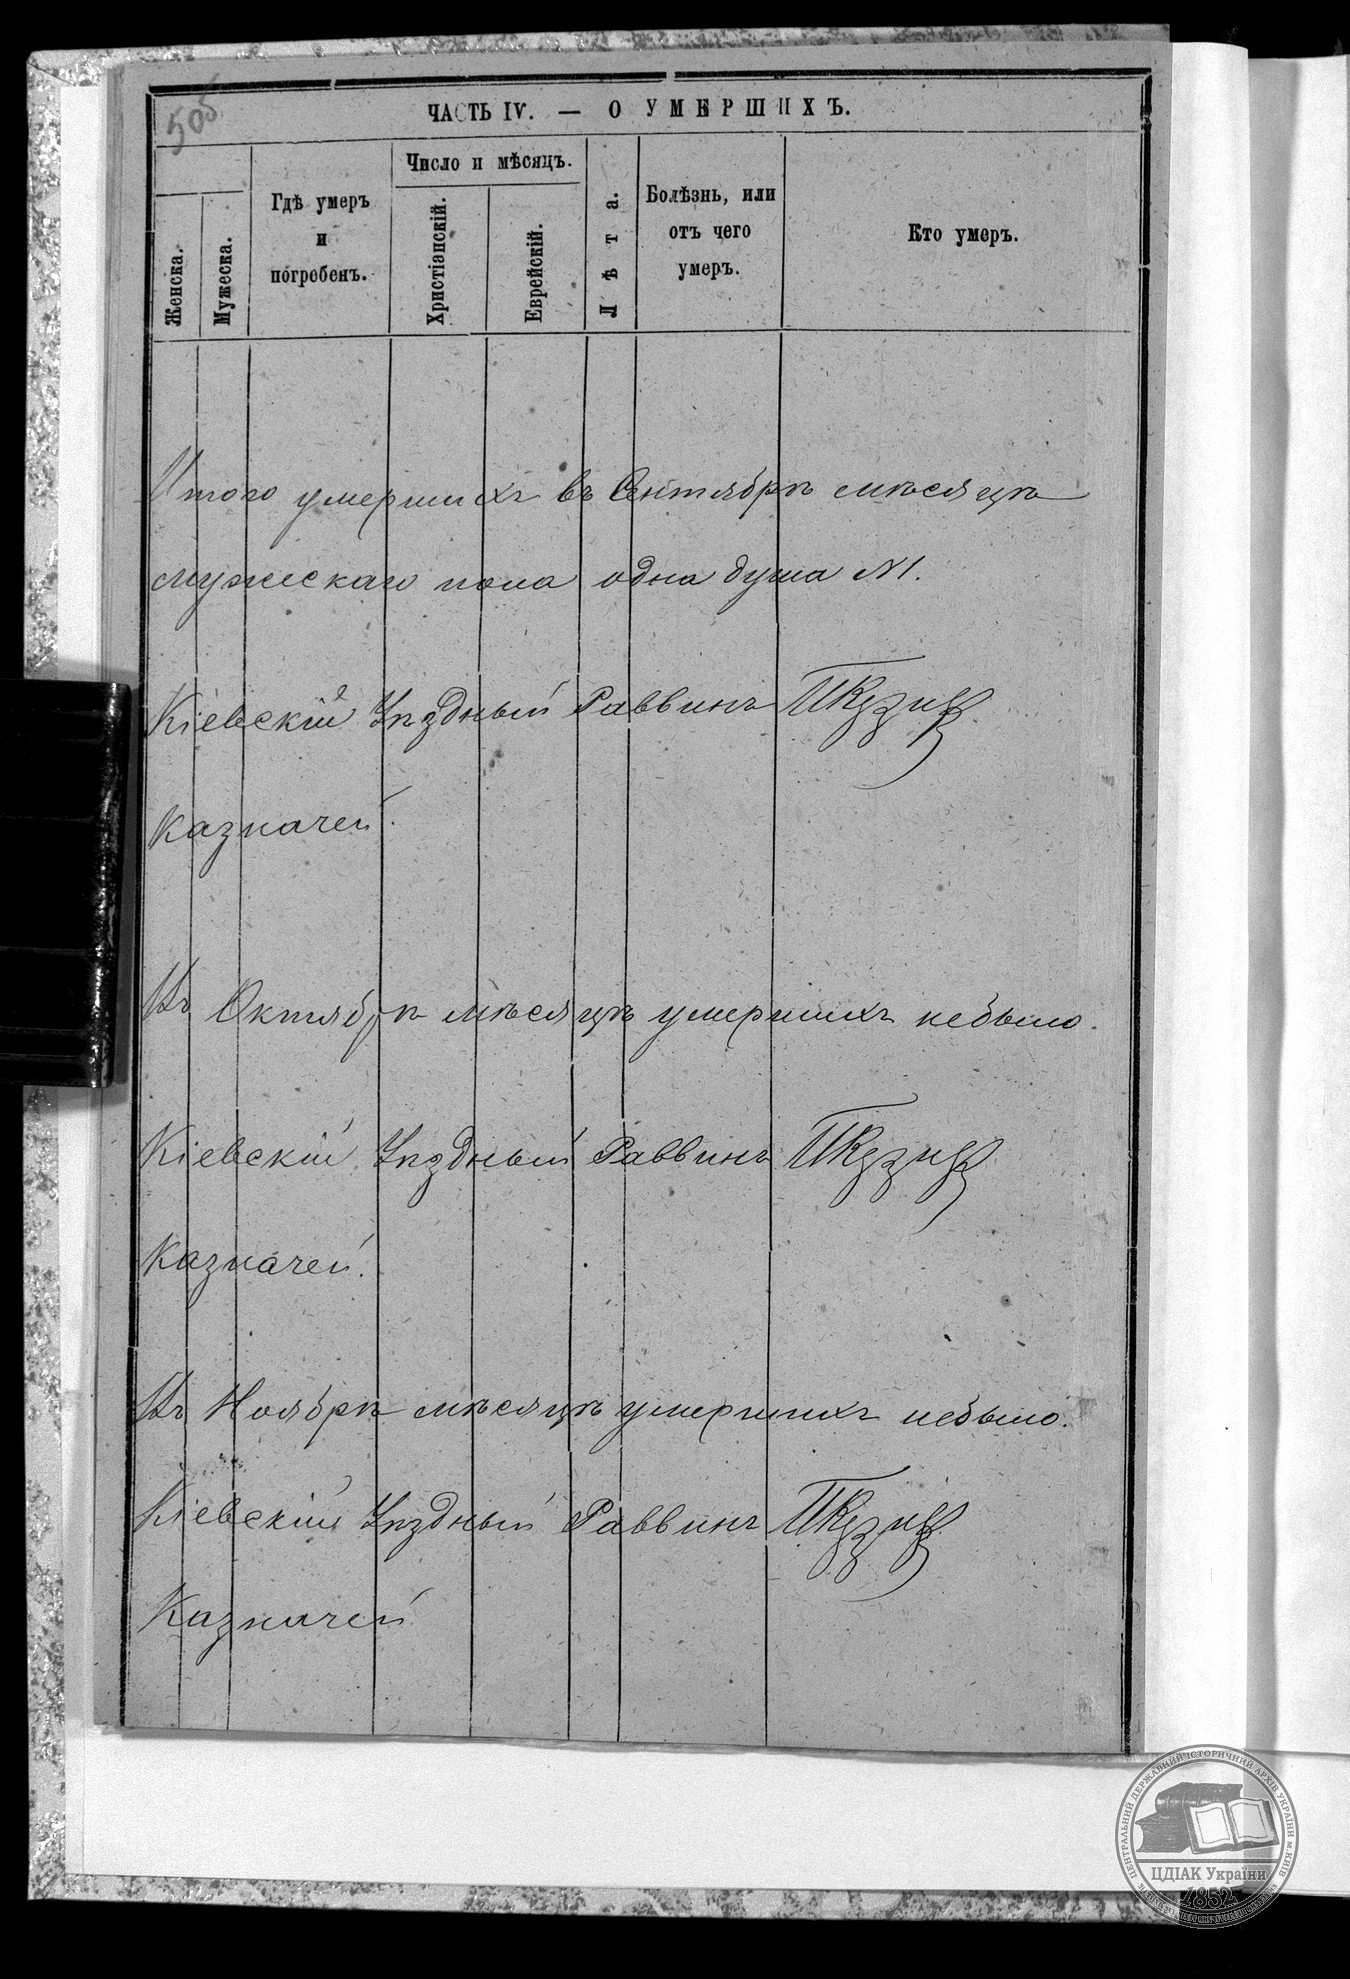 505
ЧАСТЬ IV. — О УМЕРШИХЪ.
Женска.
Мужеска.
Гдѣ умеръ
и
погребенъ.
Число и мѣсяцъ.
Христіанскій.
Еврейскій.
Лѣта.
Болѣзнь, или
отъ чего
умеръ.
Кто умеръ.
Итого умершихъ въ Сентябрѣ мѣсяцѣ
мужескаго пола одна душа №1.
Кіевскій Уѣздный Раввинъ
Казначей.
Въ Октябрѣ мѣсяцѣ умершихъ небыло.
Кіевскій Уѣздный Раввинъ
Казначей.
Въ Ноябрѣ мѣсяцѣ умершихъ небыло.
Кіевскій Уѣздный Раввинъ
Казначей
ЦЕНТРАЛЬНИЙ ДЕРЖАВНИЙ ІСТОРИЧНИЙ АРХІВ УКРАЇНИ М.КИЇВ
ЦДІАК України
1852